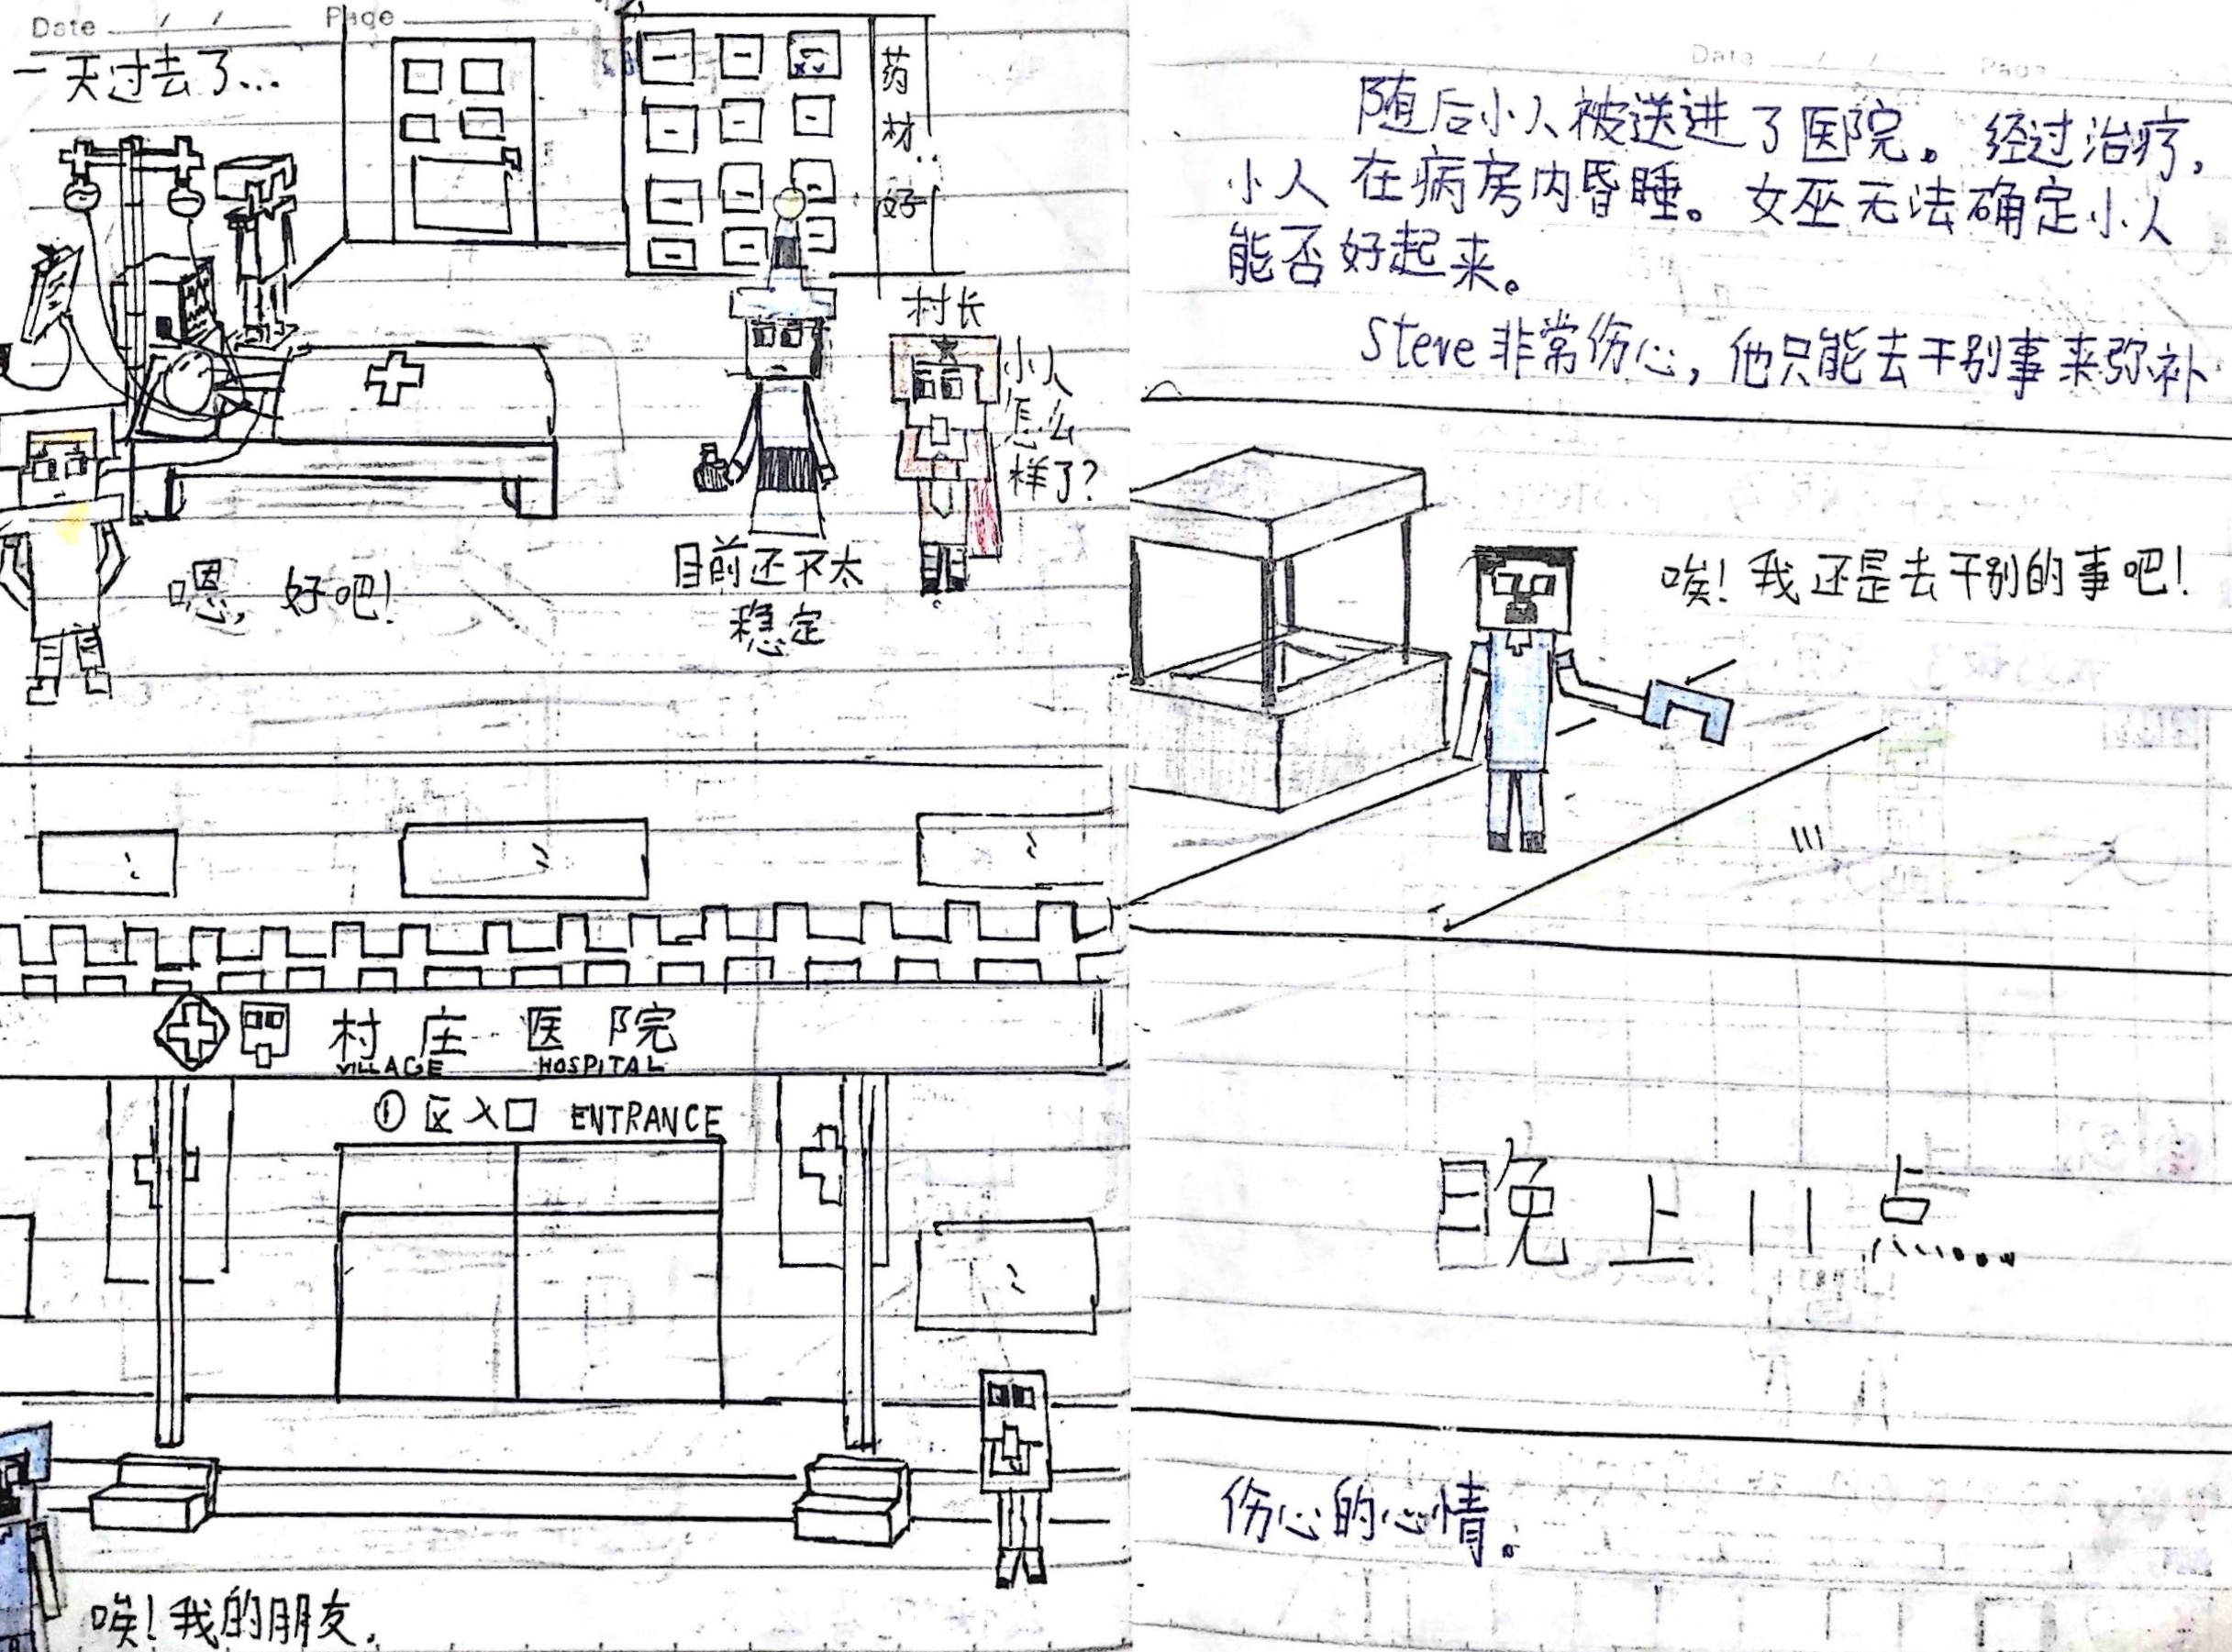 Date / / Page
一天过去了...
药材
好
村长
小人
怎么
样了?
目前还不太
稳定
嗯,好吧!
村庄医院
VILLAGE HOSPITAL
①区入口 ENTRANCE
唉!我的朋友.
Date / / Page
随后小人被送进了医院。经过治疗,
小人在病房内昏睡。女巫无法确定小人
能否好起来。
Steve非常伤心,他只能去干别事来弥补
唉!我还是去干别的事吧!
晚上11点......
伤心的心情。